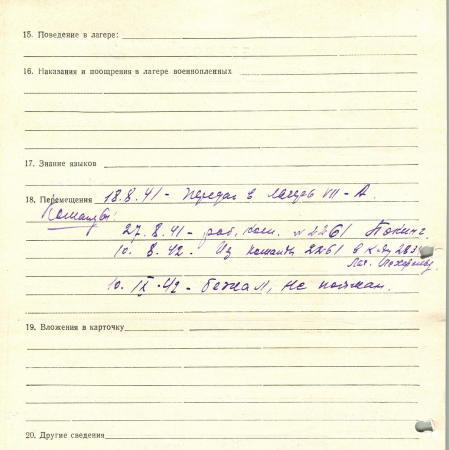 15. Поведение в лагере:
16. Наказания и поощрения в лагере военнопленных
17. Знание языков
18. Перемещения 18.8.41 - передан в лагерь VII-А.
Команды:
27.8.41 - раб. ком. № 2261 Покинг
10.8.42. Из команды 2261 в
10.IX.42 - бежал, не пойман.
19. Вложения в карточку
20. Другие сведения